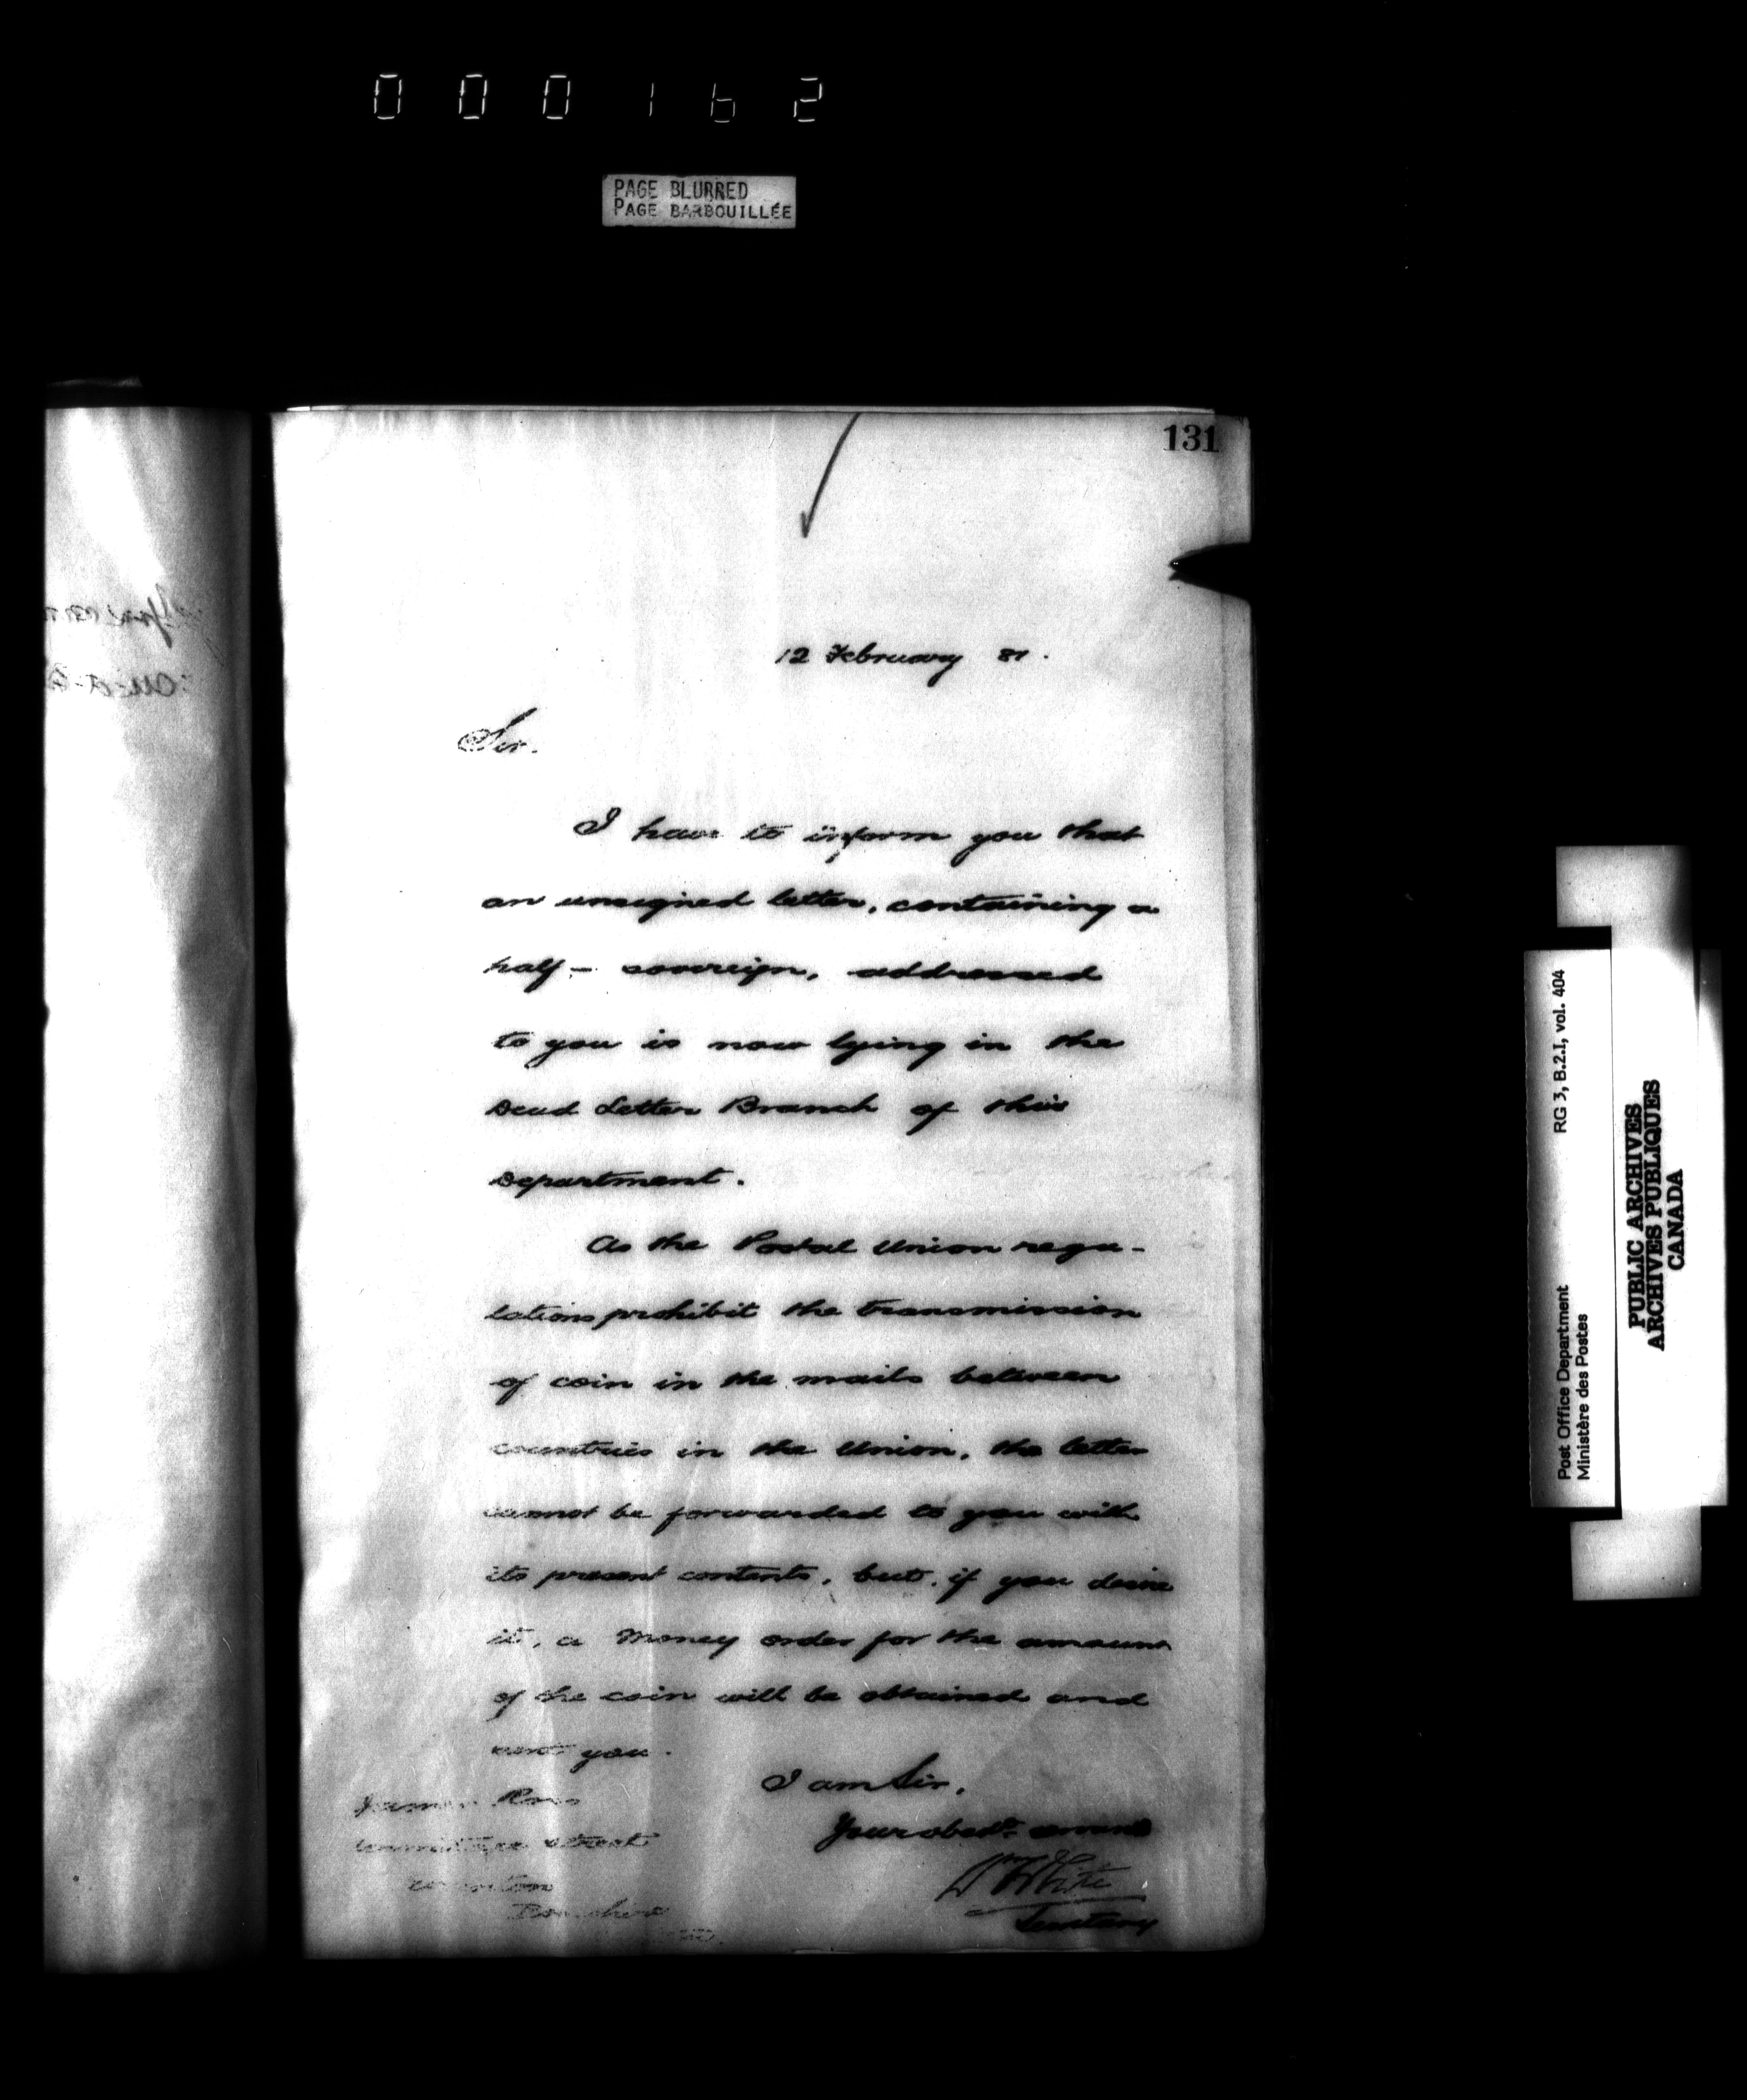 000162
PAGE BLURRED
PAGE BARBOUILLÉE
131
12 February 81.
Sir.
I have to inform you that
an unsigned letter, containing a
half-sovereign, addressed
to you is now lying in the
Dead Letter Branch of this
Department.
As the Postal Union regu-
lations prohibit the transmission
of coin in the mails between
countries in the Union, the letter
cannot be forwarded to you with
its present contents, but, if you desire
it, a Money order for the amount
of the coin will be obtained and
sent you.
I am Sir,
Your obedt. servant
Wm White
Secretary
James Ross
street
Post Office Department
Ministère des Postes
RG 3, B.2.I, vol. 404
PUBLIC ARCHIVES
ARCHIVES PUBLIQUES
CANADA